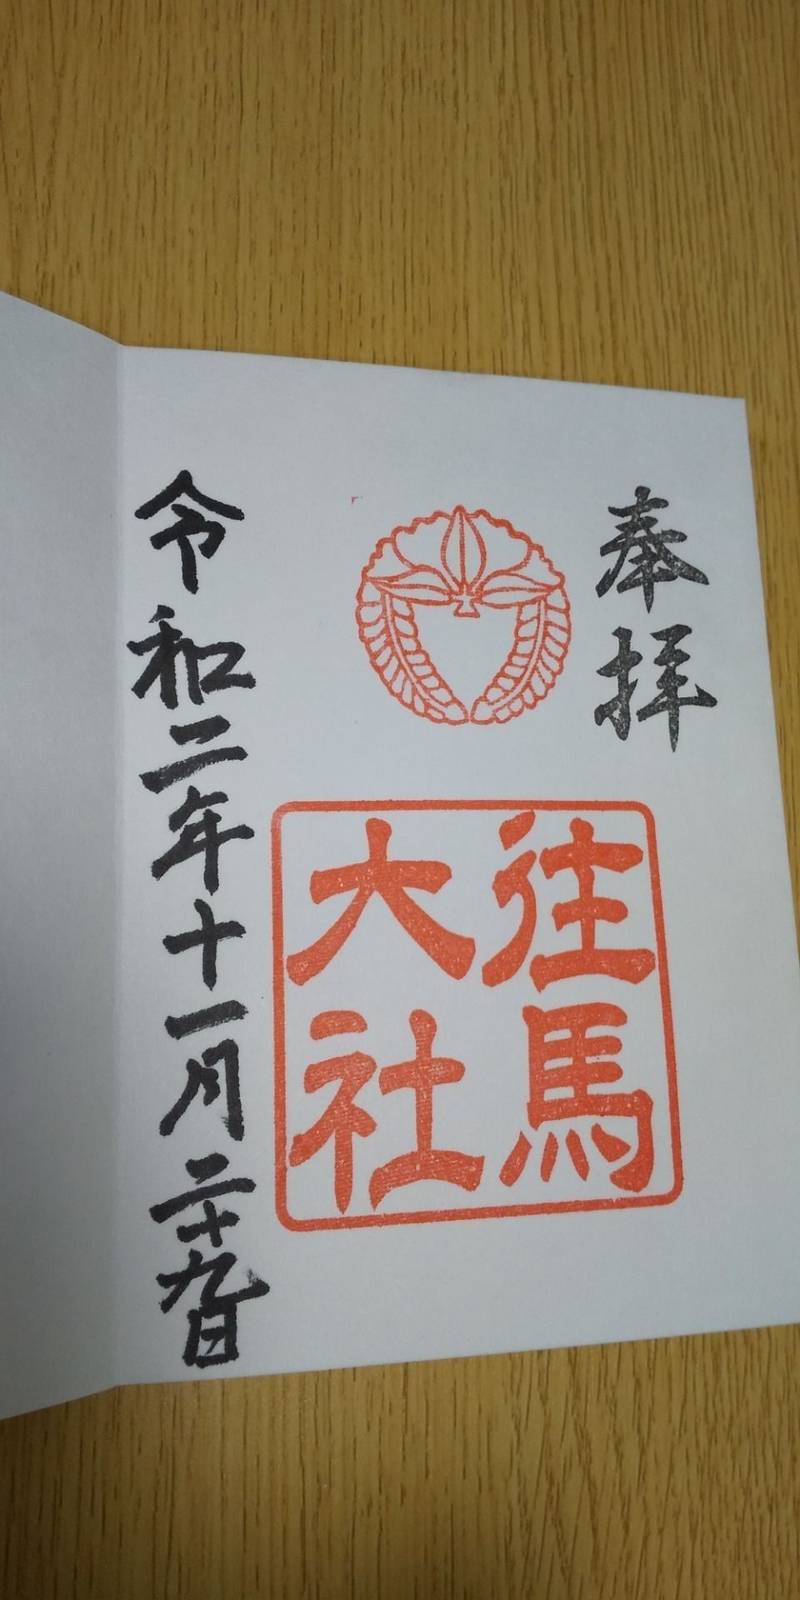 奉拝
往馬
大社
令和二年十一月二十九日